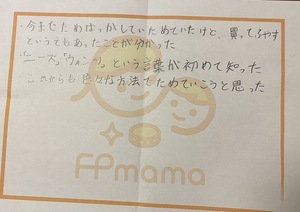 ・今までためはっかしていためていたけど、買ってふやす
というてもあったことが分かった
・「ニーズ」「ウォンツ」という言葉が初めて知った
これからも色々な方法でためていこうと思った
FPmama